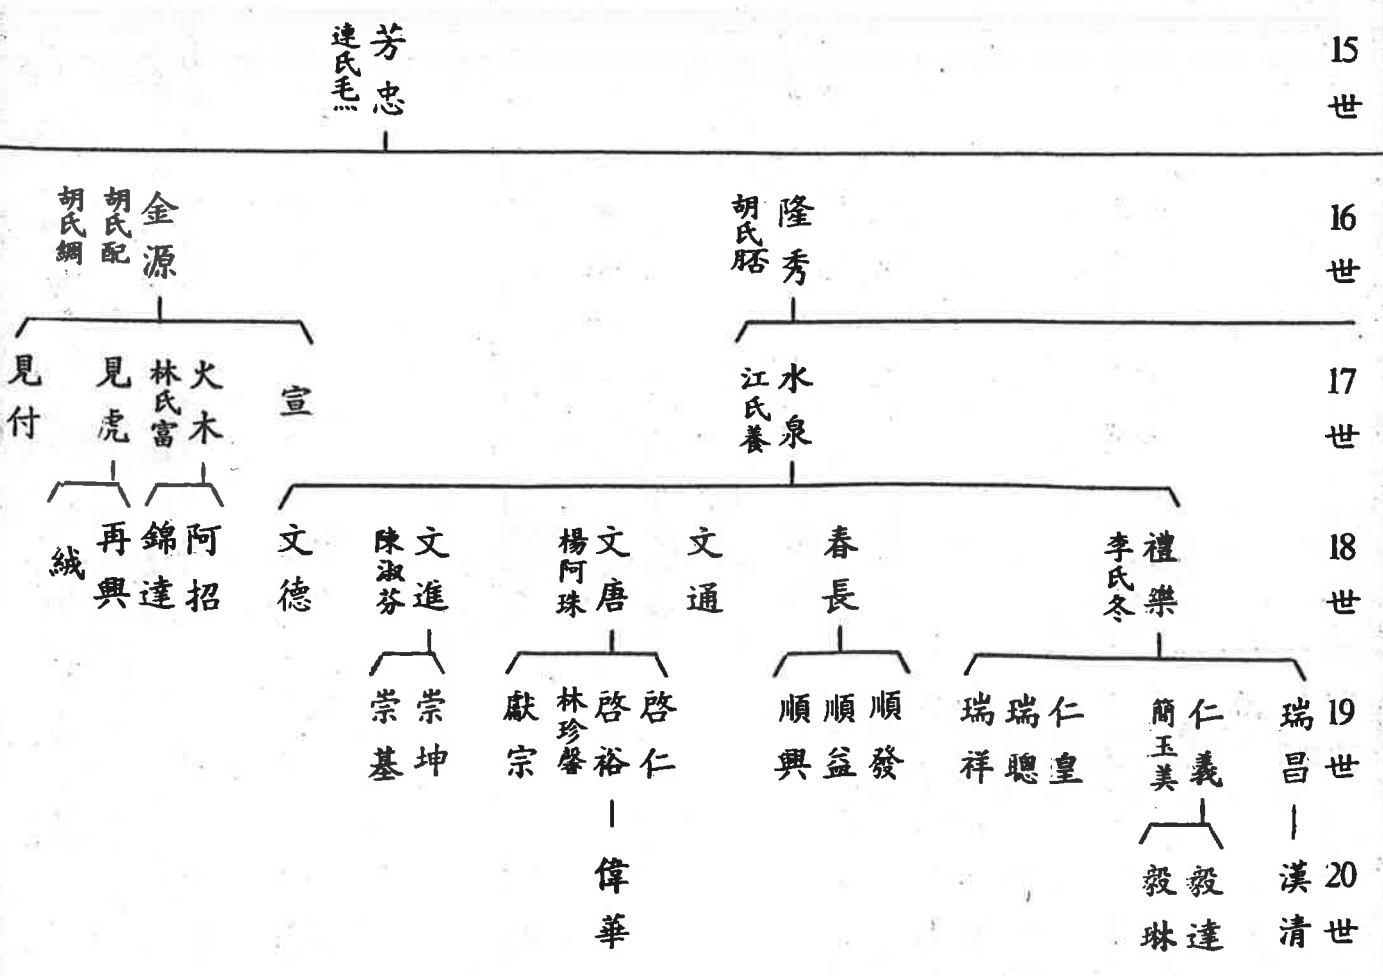 15世
芳忠
連氏毛
16世
隆秀
胡氏
金源
胡氏配
胡氏綢
17世
水泉
江氏養
宣
火木
林氏富
見虎
見付
18世
禮樂
李氏冬
春長
文通
文唐
楊阿珠
文進
陳淑芬
文德
阿招
錦達
再興
絨
19世
瑞昌
仁義
簡玉美
仁皇
瑞聰
瑞祥
順發
順益
順興
啓仁
啓裕
林珍馨
獻宗
崇坤
崇基
20世
漢清
毅達
毅琳
偉華